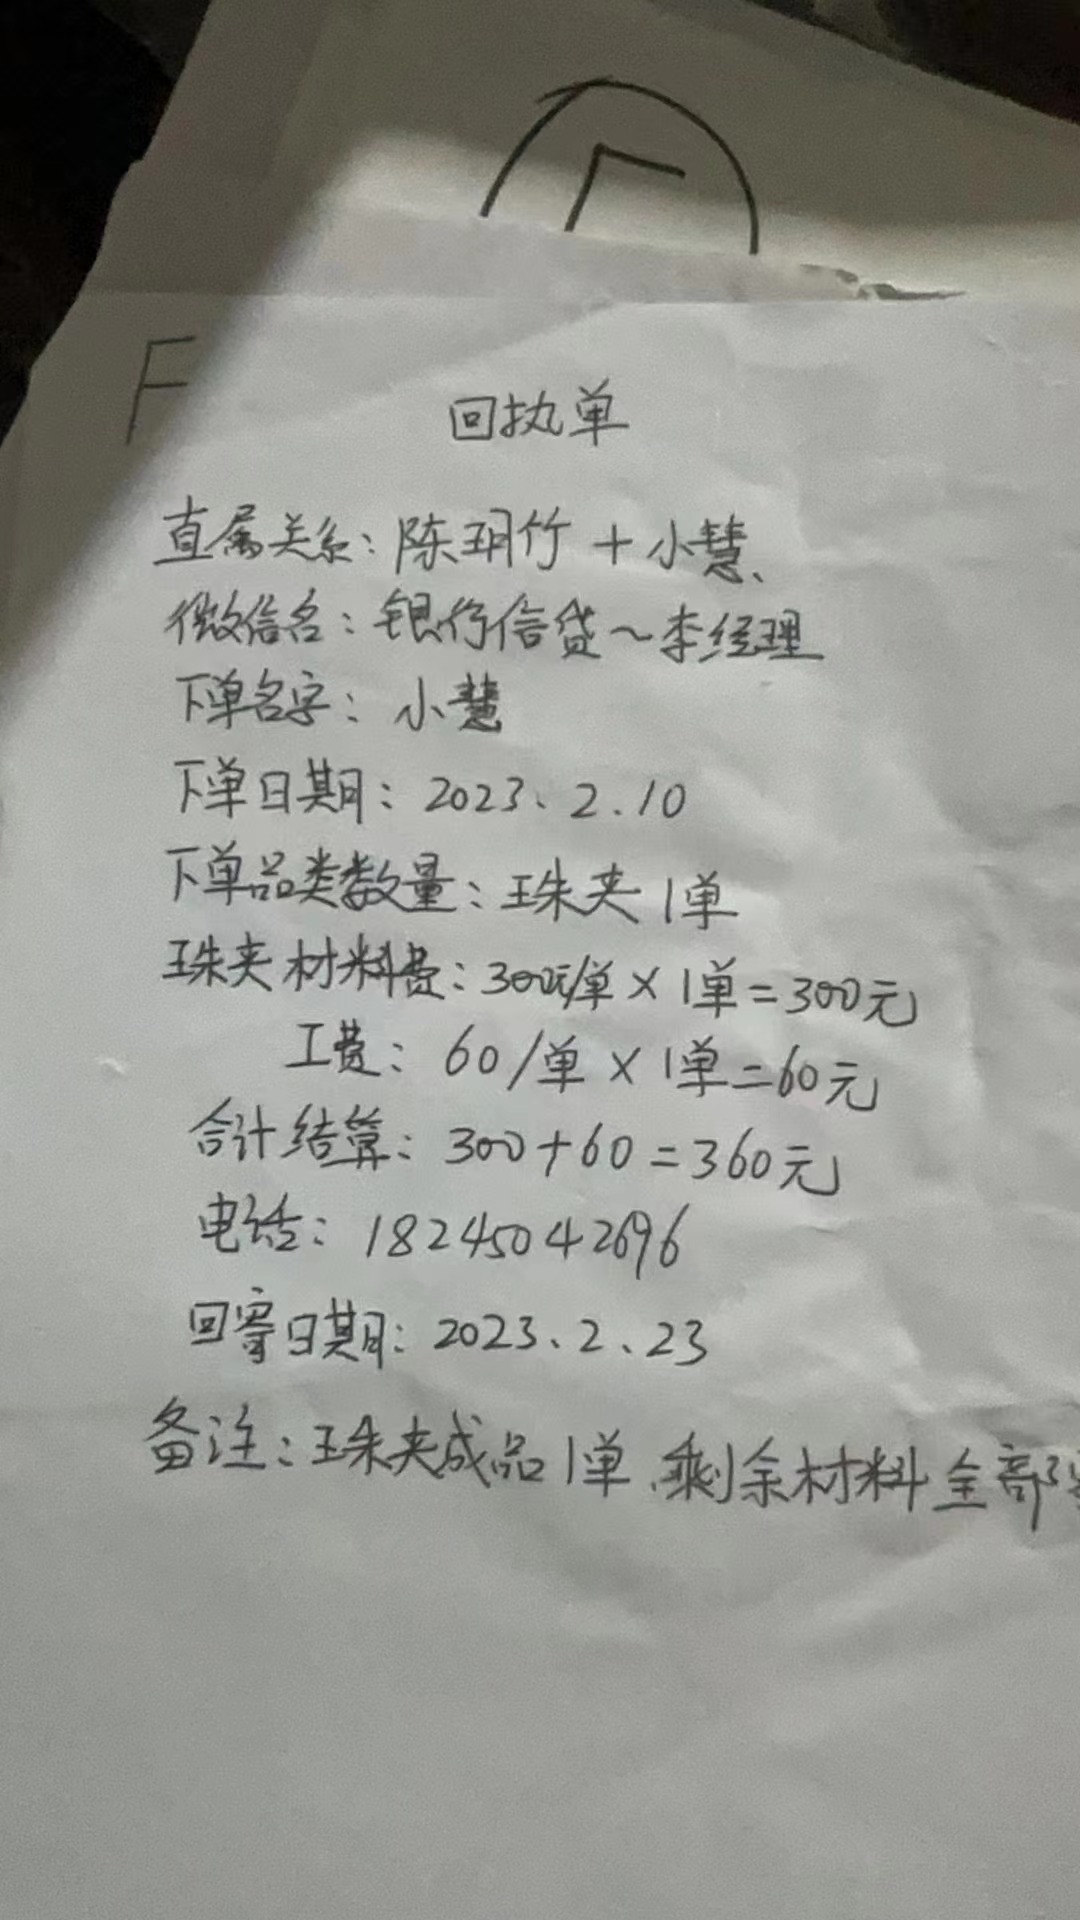 F
回执单
直属关系：陈玥竹＋小慧、
微信名：银行信贷～李经理
下单名字：小慧
下单日期：2023、2.10
下单品类数量：珠夹1单
珠夹材料费：300元/单×1单=300元
工费：60/单×1单=60元
合计结算：300+60=360元
电话：18245042696
回寄日期：2023、2、23
备注：珠夹成品1单、剩余材料全部